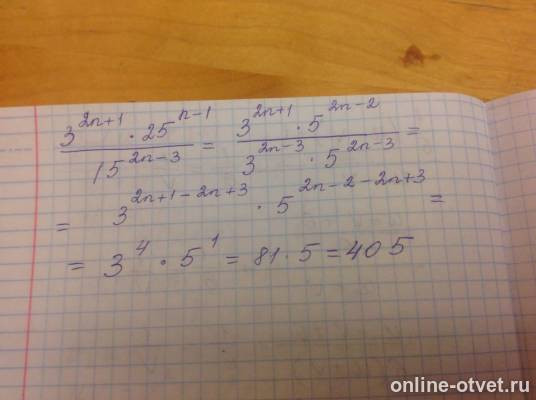 3^{2n+1} · 25^{n-1} / 15^{2n-3} = 3^{2n+1} · 5^{2n-2} / 3^{2n-3} · 5^{2n-3} =
= 3^{2n+1-2n+3} · 5^{2n-2-2n+3} =
= 3^4 · 5^1 = 81 · 5 = 405
online-otvet.ru